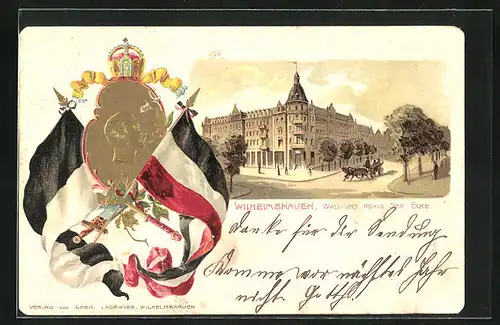 WILHELMSHAVEN, WALL- UND KÖNIG STR. ECKE
Danke für die Sendung
Komme vor nächstes Jahr
nicht.
VERLAG VON GEBR. LADEWIGS, WILHELMSHAVEN